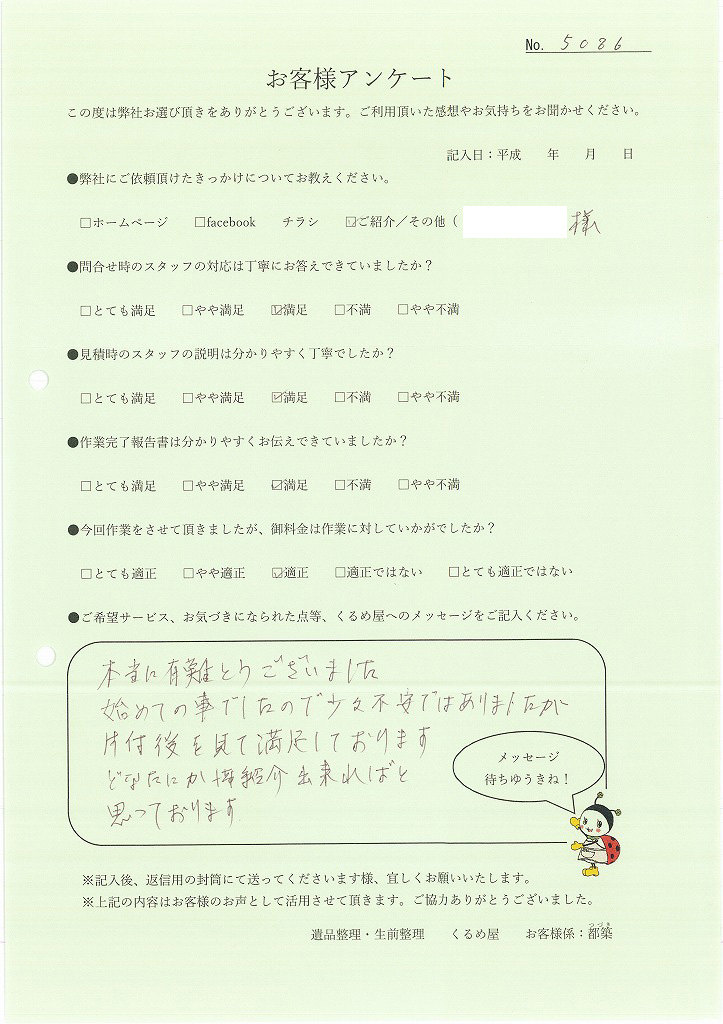 No. 5086
お客様アンケート
この度は弊社お選び頂きをありがとうございます。ご利用頂いた感想やお気持ちをお聞かせください。
記入日：平成　年　月　日
●弊社にご依頼頂けたきっかけについてお教えください。
□ホームページ　□facebook　チラシ　☑ご紹介／その他（　様
●問合せ時のスタッフの対応は丁寧にお答えできていましたか？
□とても満足　□やや満足　☑満足　□不満　□やや不満
●見積時のスタッフの説明は分かりやすく丁寧でしたか？
□とても満足　□やや満足　☑満足　□不満　□やや不満
●作業完了報告書は分かりやすくお伝えできていましたか？
□とても満足　□やや満足　☑満足　□不満　□やや不満
●今回作業をさせて頂きましたが、御料金は作業に対していかがでしたか？
□とても適正　□やや適正　☑適正　□適正ではない　□とても適正ではない
●ご希望サービス、お気づきになられた点等、くるめ屋へのメッセージをご記入ください。
本当に有難とうございました
始めての事でしたので少々不安ではありましたが
片付後を見て満足しております
どなたにか御紹介出来ればと
思っております
メッセージ
待ちゆうきね！
※記入後、返信用の封筒にて送ってくださいます様、宜しくお願いいたします。
※上記の内容はお客様のお声として活用させて頂きます。ご協力ありがとうございました。
遺品整理・生前整理　くるめ屋　お客様係：都築
つづき